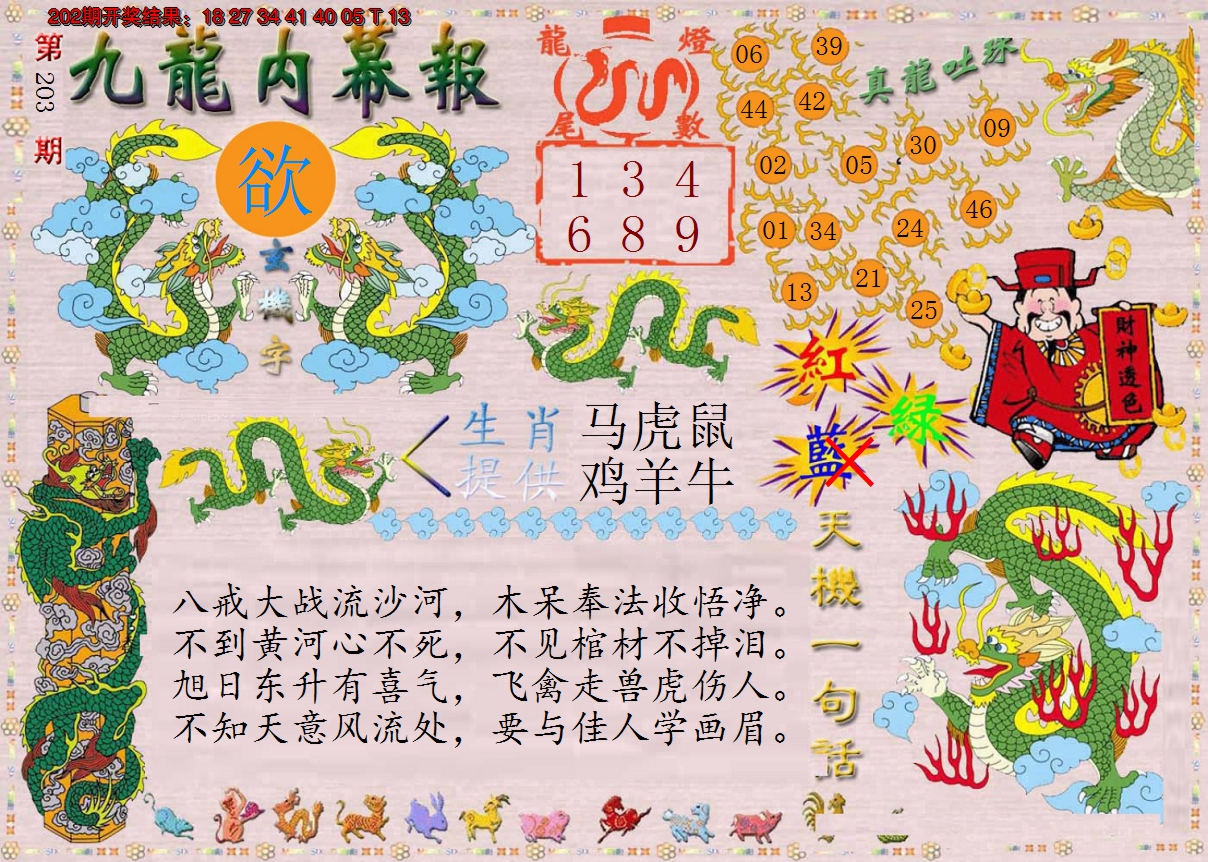 202期开奖结果：18 27 34 41 40 05 T 13
第203期
九龍内幕報
欲
玄機字
龍燈
尾數
1 3 4
6 8 9
真龍吐珠
06 39
44 42
30 09
02 05
46
01 34 24
13 21
25
紅
綠
藍
財神透色
生肖 马虎鼠
提供 鸡羊牛
天機一句话
八戒大战流沙河，木呆奉法收悟净。
不到黄河心不死，不见棺材不掉泪。
旭日东升有喜气，飞禽走兽虎伤人。
不知天意风流处，要与佳人学画眉。